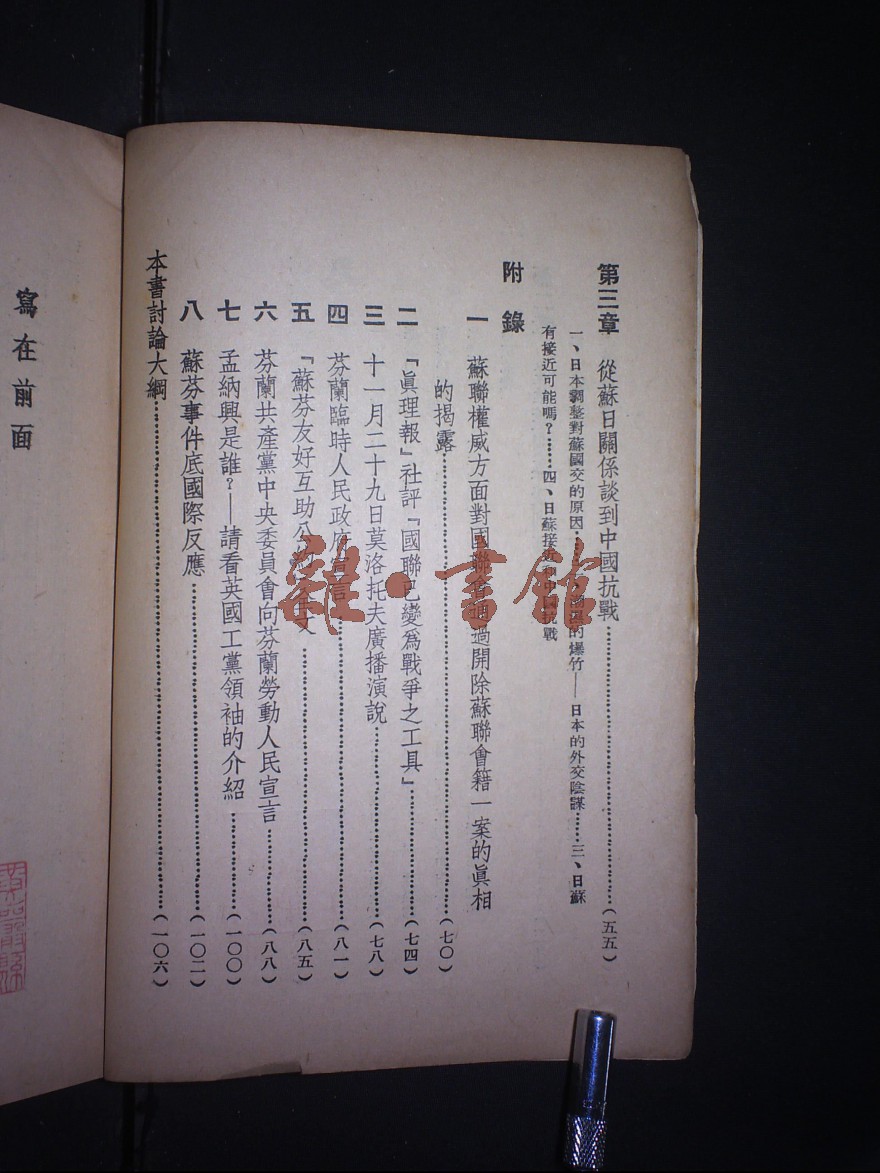 第三章　從蘇日關係談到中國抗戰……（五五）
一、日本調整對蘇國交的原因……的爆竹——日本的外交陰謀……三、日蘇
有接近可能嗎？……四、日蘇接近和中國抗戰
附錄
一　蘇聯權威方面對國聯會通過開除蘇聯會籍一案的眞相
的揭露……（七〇）
二　『眞理報』社評『國聯已變爲戰爭之工具』……（七四）
三　十一月二十九日莫洛托夫廣播演說……（七八）
四　芬蘭臨時人民政府宣言……（八一）
五　『蘇芬友好互助公約』全文……（八五）
六　芬蘭共產黨中央委員會向芬蘭勞動人民宣言……（八八）
七　孟納興是誰？——請看英國工黨領袖的介紹……（一〇〇）
八　蘇芬事件底國際反應……（一〇二）
本書討論大綱……（一〇六）
寫在前面
雜·書館